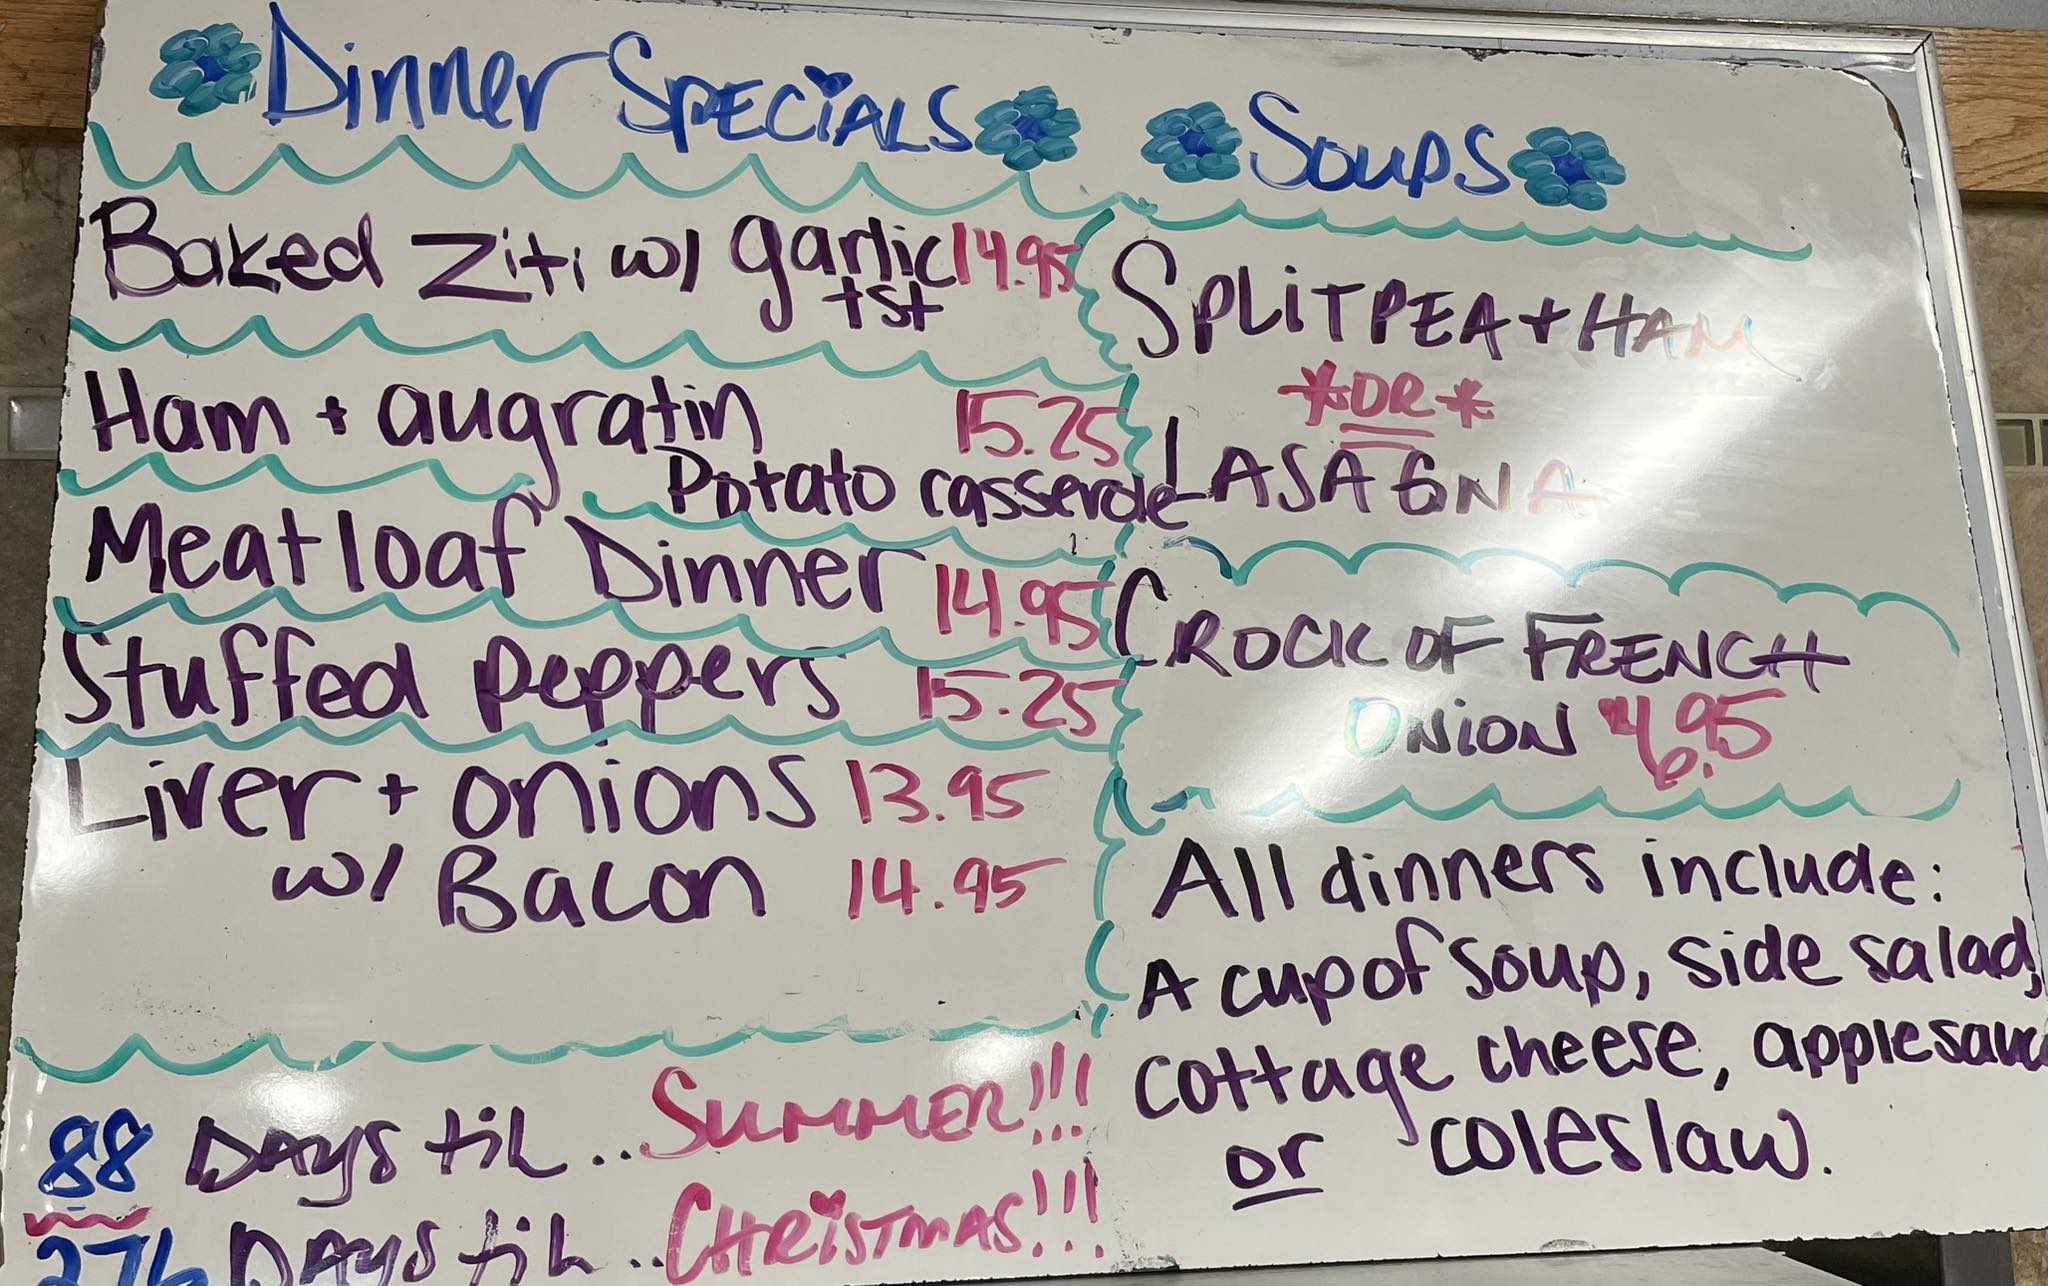 Dinner SPECiALS
Baked Ziti w/ garlic 14.95
tst
Ham + augratin 15.25
Potato casserole
Meatloaf Dinner 14.95
Stuffed peppers 15.25
Liver + onions 13.95
w/ Bacon 14.95
88 DAYS til... SUMMER!!!
276 DAYS til... CHRiSTMAS!!!
SOUPS
SPLiT PEA + HAM
*OR*
LASAGNA
CROCK OF FRENCH
ONiON $6.95
All dinners include:
A cup of soup, side salad,
cottage cheese, applesauce
or coleslaw.